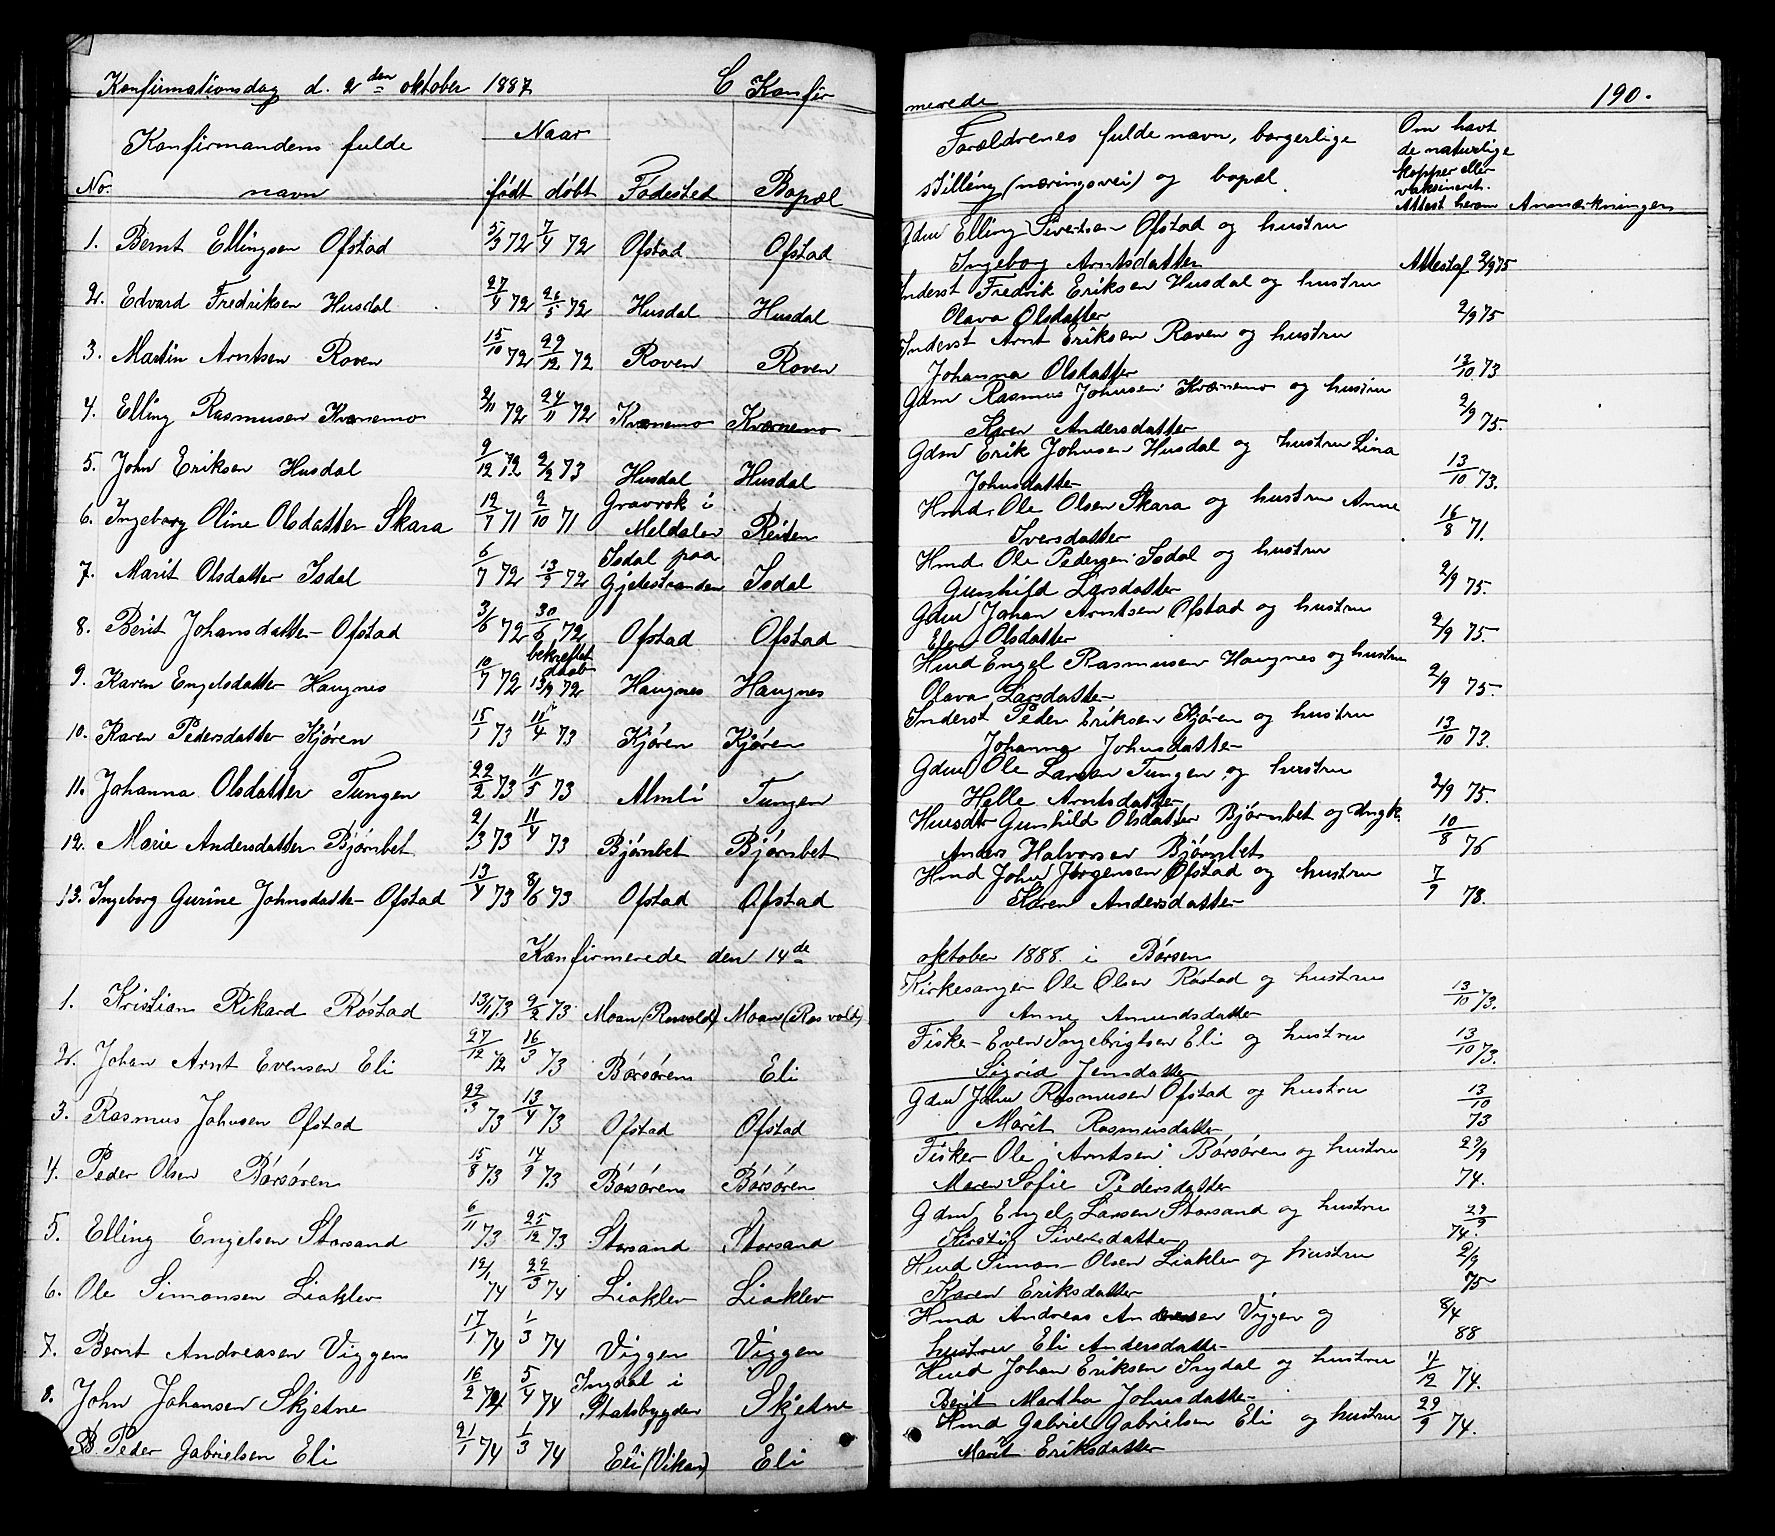 Konfirmationsdag d. 2den oktober 1887
C Konfir
Konfirmandens fulde
Naar
No. navn født døbt Fødested Bopæl
1. Bernt Ellingsen Ofstad 5/3 72 7/4 72 Ofstad Ofstad
2. Edvard Fredriksen Husdal 27/4 72 26/5 72 Husdal Husdal
3. Martin Arntsen Roven 15/10 72 29/12 72 Roven Roven
4. Elling Rasmusen Kvernemo 2/11 72 24/11 72 Kvernemo Kvernemo
5. John Eriksen Husdal 9/12 72 2/2 73 Husdal Husdal
Gravrok i
6. Ingeborg Oline Olsdatter Skara 19/7 71 2/10 71 Meldalen Reiten
Isdal paa
7. Marit Olsdatter Isdal 6/7 72 13/9 72 Gjetestranden Isdal
8. Berit Johansdatter Ofstad 3/6 72 30/6 72 Ofstad Ofstad
bekreftet
daab
9. Karen Engelsdatter Haugnes 10/7 72 13/9 72 Haugnes Haugnes
10. Karen Pedersdatter Kjøren 15/1 73 11/4 73 Kjøren Kjøren
11. Johanna Olsdatter Tungen 22/2 73 11/5 73 Almli Tungen
12. Marie Andersdatter Bjørnbet 2/3 73 11/4 73 Bjørnbet Bjørnbet
13. Ingeborg Gurine Johnsdatter Ofstad 13/4 73 8/6 73 Ofstad Ofstad
Konfirmerede den 14de
1. Kristian Rikard Røstad 13/1 73 2/2 73 Moan (Rosvold) Moan (Rosvold)
2. Johan Arnt Evensen Eli 27/12 72 16/3 73 Børsøren Eli
3. Rasmus Johnsen Ofstad 22/3 73 13/4 73 Ofstad Ofstad
4. Peder Olsen Børsøren 15/8 73 14/9 73 Børsøren Børsøren
5. Elling Engelsen Storsand 6/11 73 25/12 73 Storsand Storsand
6. Ole Simonsen Liaklev 12/1 74 22/3 74 Liaklev Liaklev
7. Bernt Andreasen Viggen 17/1 74 1/3 74 Viggen Viggen
Ingdal i
8. John Johansen Skjetne 16/2 74 5/4 74 Statsbygden Skjetne
Peder Gabrielsen Eli 21/1 74 1/3 74 Eli (Vikan) Eli
merede 190.
Forældrenes fulde navn, borgerlige
stilling (næringsvei) og bopæl.
Om havt
de naturlige
kopper eller
vaksineret.
Attest herom Anmærkninger
Gdm Elling Sivertsen Ofstad og hustru
Ingebog Arntsdatter Attest af 2/9 75
Inderst Fredrik Eriksen Husdal og hustru
Olava Olsdatter 2/9 75
Inderst Arnt Eriksen Roven og hustru
Johanna Olsdatter 13/10 73
Gdm Rasmus Johnsen Kvernemo og hustru
Karen Andersdatter 2/9 75.
Gdm Erik Johnsen Husdal og hustru Lina
Johnsdatter 13/10 73.
Hmd. Ole Olsen Skara og hustru Anne
Iversdatter 16/8 71.
Hmd Ole Pedersen Isdal og hustru
Gunhild Larsdatter 2/9 75.
Gdm Johan Arntsen Ofstad og hustru
Elen Olsdatter 2/9 75.
Hmd Engel Rasmusen Haugnes og hustru
Olava Larsdatter 2/9 75.
Inderst Peder Eriksen Kjøren og hustru
Johanna Johnsdatter 13/10 73.
Gdm Ole Larsen Tungen og hustru
Helle Arntsdatter 2/9 75.
Husdtr Gunhild Olsdatter Bjørnbet og Ungk.
Anders Halvorsen Bjørnbet 10/8 76
Hmd John Jørgensen Ofstad og hustru
Karen Andersdatter 7/9 78.
oktober 1888 i Børsen
Kirkesanger Ole Olsen Røstad og hustru
Anne Amundsdatter 13/10 73.
Fisker Even Ingebrigtsen Eli og hustru
Sigrid Jensdatter 13/10 73.
Gdm John Rasmusen Ofstad og hustru
Marit Rasmusdatter 13/10 73
Fisker Ole Arntsen Børsøren og hustru
Maren Sofie Pedersdatter 22/9 74.
Gdm Engel Larsen Storsand og hustru
Kirstig Sivertsdatter 22/9 74.
Hmd Simon Olsen Liaklev og hustru
Karen Eriksdatter 2/9 75
Hmd Andreas Andersen Viggen og
hustru Eli Andersdatter 8/4 88
Hmd Johan Eriksen Ingdal og hustru
Berit Martha Johnsdatter 11/12 74.
Hmd Gabriel Gabrielsen Eli og hustru
Marit Eriksdatter 22/9 74.